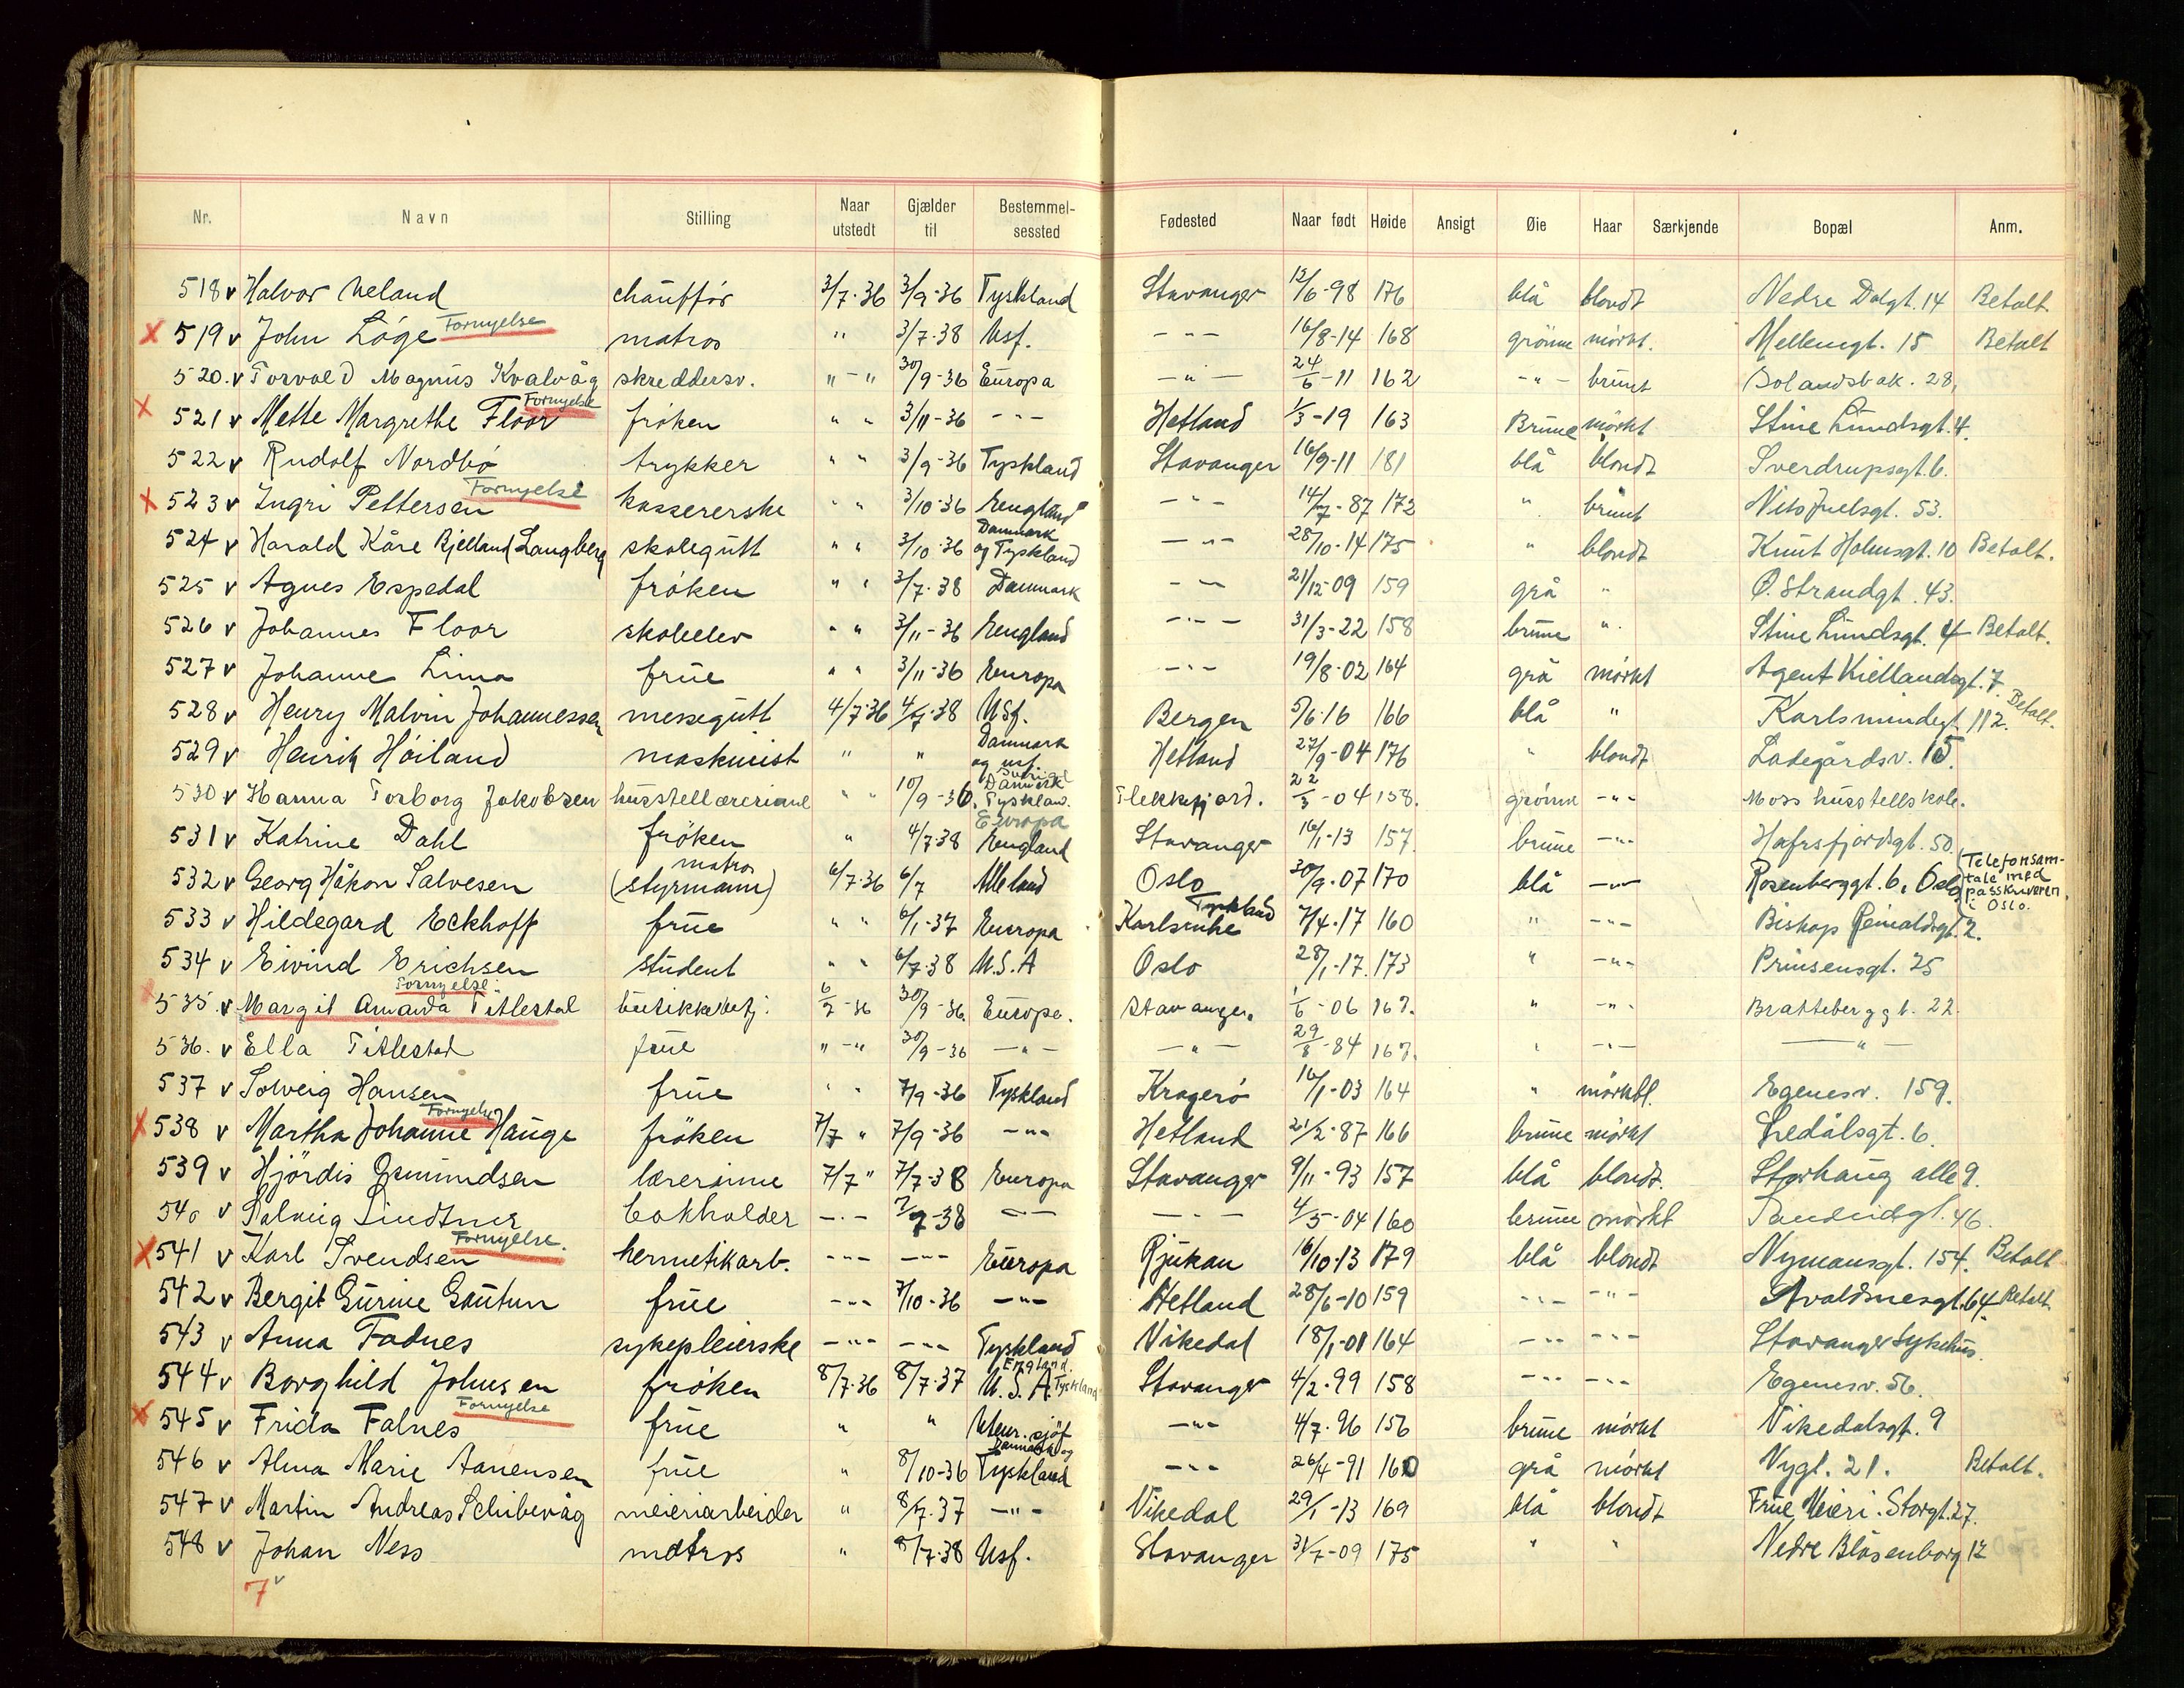 Nr. Navn Stilling Naar utstedt Gjælder til Bestemmelsessted Fødested Naar født Høide Ansigt Øie Haar Særkjende Bopæl Anm.
518 v Halvor Meland chauffør 3/7-36 3/9-36 Tyskland Stavanger 12/6-98 176 blå blondt Nedre Dalgt. 14 Betalt
X 519 v John Løge Fornyelse matros " 3/7-38 Usf. -"- 16/8-14 168 grønne mørkt. Mellemgt. 15 Betalt
520. v Torvald Magnus Kvalvåg skreddersv. "-" 30/9-36 Europa -"- 24/6-11 162 -"- brunt Solandsbak. 28,
X 521 v Mette Margrethe Floor Fornyelse frøken " " 3/11-36 -"- Hetland 1/3-19 163 Brune mørkt Stine Lundsgt. 4.
522 v Rudolf Nordbø trykker " " 3/9-36 Tyskland Stavanger 16/9-11 181 blå blondt Sverdrupsgt. 6.
X 523 v Ingri Pettersen Fornyelse kassererske " " 3/10-36 England -"- 14/7-87 172 " brunt Nils Juelsgt. 53.
524 v Harald Kåre Bjelland (Langberg skolegutt " " 3/10-36 Danmark og Tyskland -"- 28/10-14 175 " blondt Knut Holmsgt. 10 Betalt.
525 v Agnes Espedal frøken " " 3/7-38 Danmark -"- 21/12-09 159 grå " Ø. Strandgt. 43.
526 v Johannes Floor skoleelev " " 3/11-36 England -"- 31/3-22 158 brune " Stine Lundsgt. 4 Betalt.
527 v Johanne Lima frue " " 3/11-36 Europa -"- 19/8-02 164 grå mørkt Agent Kiellandsgt. 7.
528 v Henry Malvin Johannessen messegutt 4/7-36 4/7-38 Usf. Bergen 5/6-16 166 blå " Karlsmindegt 112. Betalt.
529 v Henrik Høiland maskinist " " Danmark og usf. Hetland 27/9-04 176 " blondt Ladegårdsv. 15.
530 v Hanna Torborg Jakobsen husstellærerinne " " 10/9-36. Sverige Danmark Tyskland. Flekkefjord. 22/3-04 158. grønne -"- Moss husstellskole.
531 v Katrine Dahl frøken " 4/7-38 Europa England Stavanger 16/1-13 157. brune -"- Hafrsfjordsgt. 50.
532 v Georg Håkon Salvesen matros (styrmann) 6/7-36 6/7 Alle land Oslo 30/9-07 170 blå -"- Rosenberggt. 6, Oslo (Telefonsamtale med passkriveren i Oslo.
533 v Hildegard Eckhoff frue " " 6/1-37 Europa Karlsruhe Tyskland 7/4-17 160 " -"- Biskop Reinaldsgt. 2.
534 v Eivind Erichsen student " " 6/7-38 U.S.A Oslo 28/1-17. 173 " -"- Prinsensgt. 25
535. v Margit Amanda Titlestad Fornyelse. butikkbetj. 6/7-36 30/9-36. Europa. Stavanger. 1/6-06 167. " -"- Bratteberggt. 22.
536. v Ella Titlestad frue "-" 30/9-36 -"- -"- 29/8-84 167. " -"- -"-
537 v Solveig Hansen frue " " 7/9-36 Tyskland Kragerø 16/1-03 164 " mørkbl. Egenesv. 159.
X 538 v Martha Johanne Hauge Fornyelse frøken 7/7 " 7/9-36 -"- Hetland 21/2-87 166 brune mørkt Ledålsgt. 6.
539 v Hjördis Gsmundsen lærerinne 7/7 " 7/7-38 Europa Stavanger 9/11-93 157 blå blondt. Storhaug alle 9.
540 v Solveig Lindtner bokholder -"- 7/7-38 -"- -"- 4/5-04 160 brune mørkt Sandeidgt. 46.
X 541 v Karl Svendsen Fornyelse. hermetikarb. -"- -"- Europa Rjukan 16/10-13 179 blå blondt Nymansgt. 154. Betalt
542 v Bergit Gurine Gautun frue -"- 7/10-36 -"- Hetland 28/6-10 159 -"- -"- Avaldsnesgt. 64. Betalt.
543 v Anna Fadnes sykepleierske -"- -"- Tyskland Vikedal 18/1-01 164 -"- -"- Stavanger Sykehus.
544 v Borghild Johnsen frøken 8/7-36 8/7-37 England. U.S.A Tyskland Stavanger 4/2-99 158 -"- -"- Egenesv. 56.
X 545 v Frida Falnes Fornyelse frue " " Uteur. sjøf -"- 4/7-96 156 brune mørkt Vikedalsgt. 9
546 v Alma Marie Aanensen frue " 8/10-36 Danmark og Tyskland -"- 26/4-91 160 grå mørkt Nygt. 21. Betalt.
547 v Martin Andreas Schibevåg meieriarbeider " 8/7-37 -"- Vikedal 29/1-13 169 blå blondt Frue Meieri. Storgt. 27.
548 v Johan Ness matros " 8/7-38 Usf. Stavanger 31/7-09 175 " " Nedre Blåsenborg 12
7 v